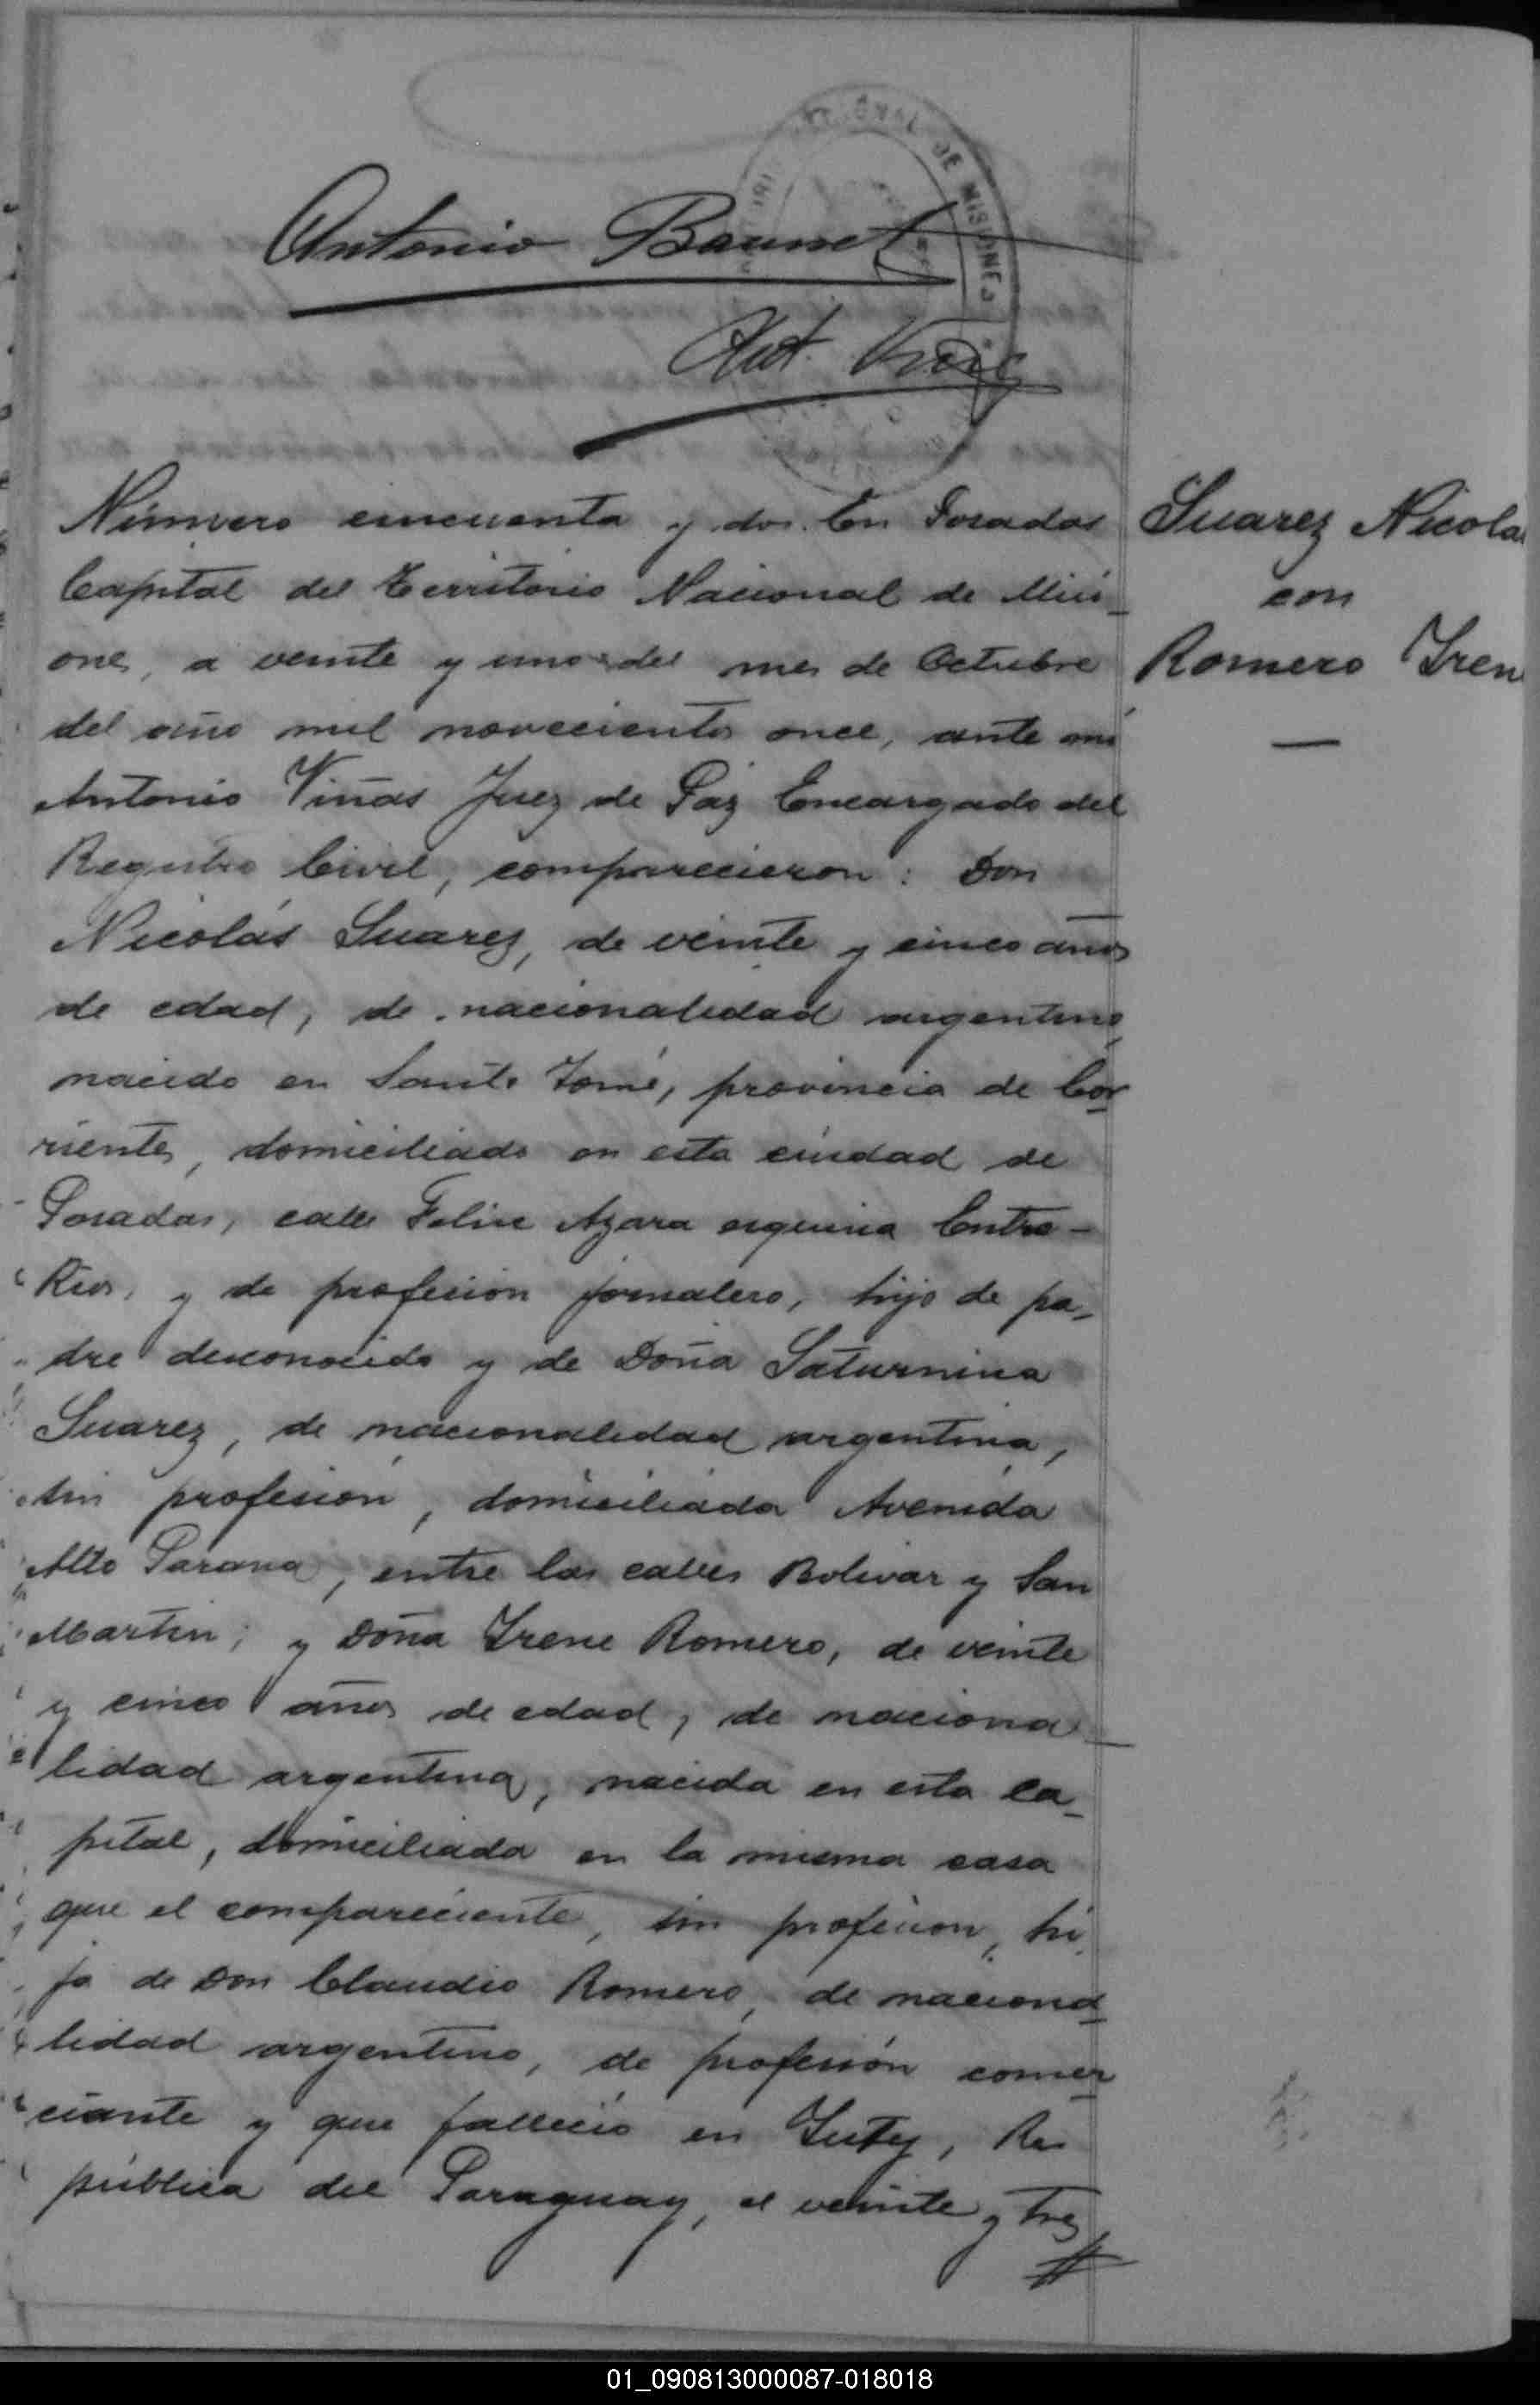 Antonio
Ant.
DE MISIONES
Número cincuenta y dos. En Posadas
Capital del Territorio Nacional de Misi-
ones, a veinte y uno del mes de Octubre
del año mil novecientos once, ante mi
Antonio Viñas Juez de Paz Encargado del
Registro Civil, comparecieron: Don
Nicolás Suarez, de veinte y cinco años
de edad, de nacionalidad argentino,
nacido en Santo Tomé, provincia de Cor-
rientes, domiciliado en esta ciudad de
Posadas, calle Felix Azara esquina Entre-
Rios, y de profesion jornalero, hijo de pa-
dre desconocido y de Doña Saturnina
Suarez, de nacionalidad argentina,
sin profesión, domiciliada Avenida
Alto Parana, entre las calles Bolivar y San
Martin; y Doña Irene Romero, de veinte
y cinco años de edad, de naciona-
lidad argentina, nacida en esta ca-
pital, domiciliada en la misma casa
que el compareciente, sin profesion, hi-
ja de Don Claudio Romero, de naciona-
lidad argentino, de profesión comer-
ciante y que falleció en Yuty, Re-
pública del Paraguay, el veinte y tres
Suarez Nicola
con
Romero Iren
01_090813000087-018018